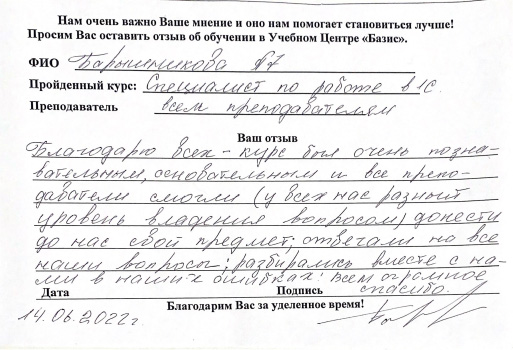 Нам очень важно Ваше мнение и оно нам помогает становиться лучше!
Просим Вас оставить отзыв об обучении в Учебном Центре «Базис».
ФИО Барышникова
Пройденный курс: Специалист по работе в 1С.
Преподаватель всем преподавателям
Ваш отзыв
Благодарю всех - курс был очень позна-
вательным, основательным и все препо-
даватели смогли (у всех нас разный
уровень владения вопросом) донести
до нас свой предмет; отвечали на все
наши вопросы; разбирались вместе с на-
ми в наших ошибках. Всем огромное
спасибо.
Дата Подпись
Благодарим Вас за уделенное время!
14.06.2022г